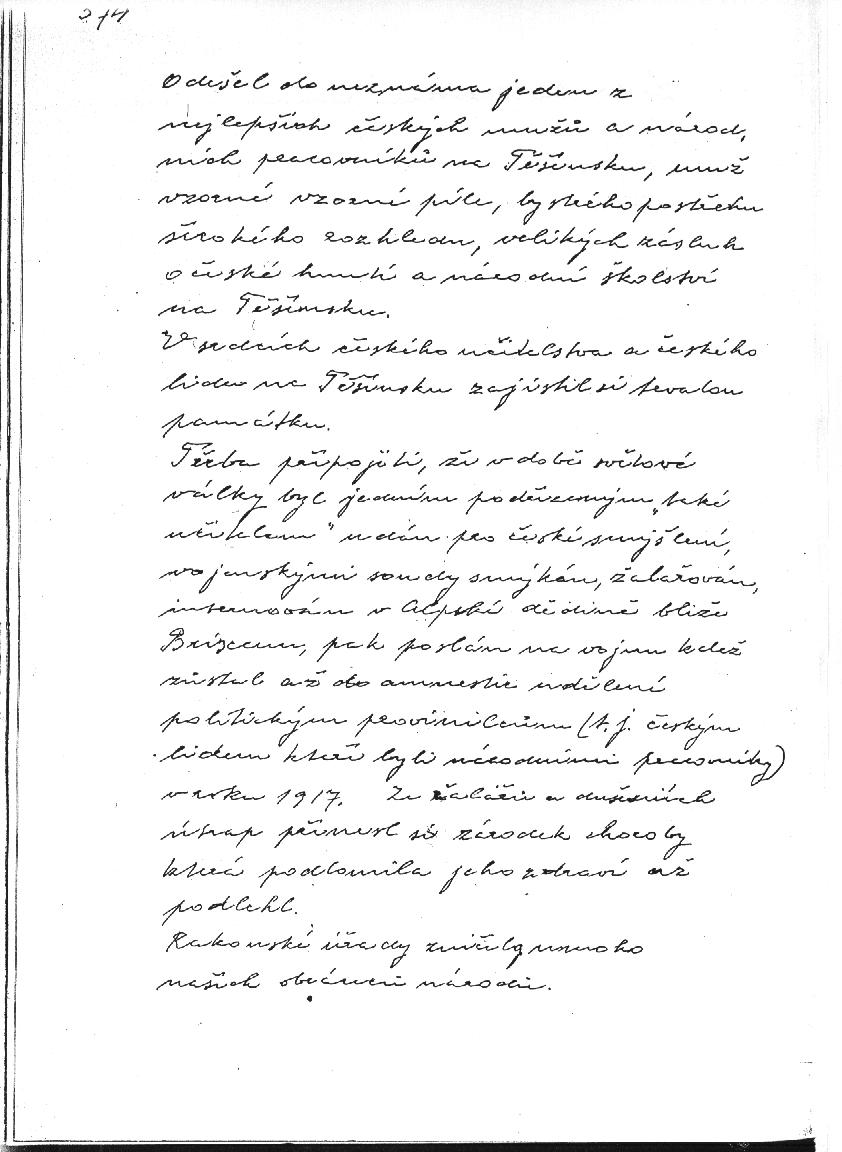 274
Odešel do neznáma jeden z
nejlepších českých mužů a národ,
ních pracovníků na Těšínsku, muž
vzorné vzorné píle, bystrého postřehu
širokého rozhledu, velikých zásluh
o české hnutí a národní školství
na Těšínsku.
V srdcích českého učitelstva a českého
lidu na Těšínsku zajistil si trvalou
památku.
Třeba připojiti, že v době světové
války byl jedním podřízeným „také
učitelem" udán pro české smýšlení,
vojenskými soudy smýkán, žalářován,
internován v Alpské dědině blíže
Brixenu, pak poslán na vojnu kdež
zůstal až do amnestie udělené
politickým provinilcům (t. j. českým
lidem kteří byli národními pracovníky)
v roku 1917. Ze žaláře a duševních
útrap přinesl si zárodek choroby
která podlomila jeho zdraví až
podlehl.
Rakouské úřady zničily mnoho
našich obránců národa.